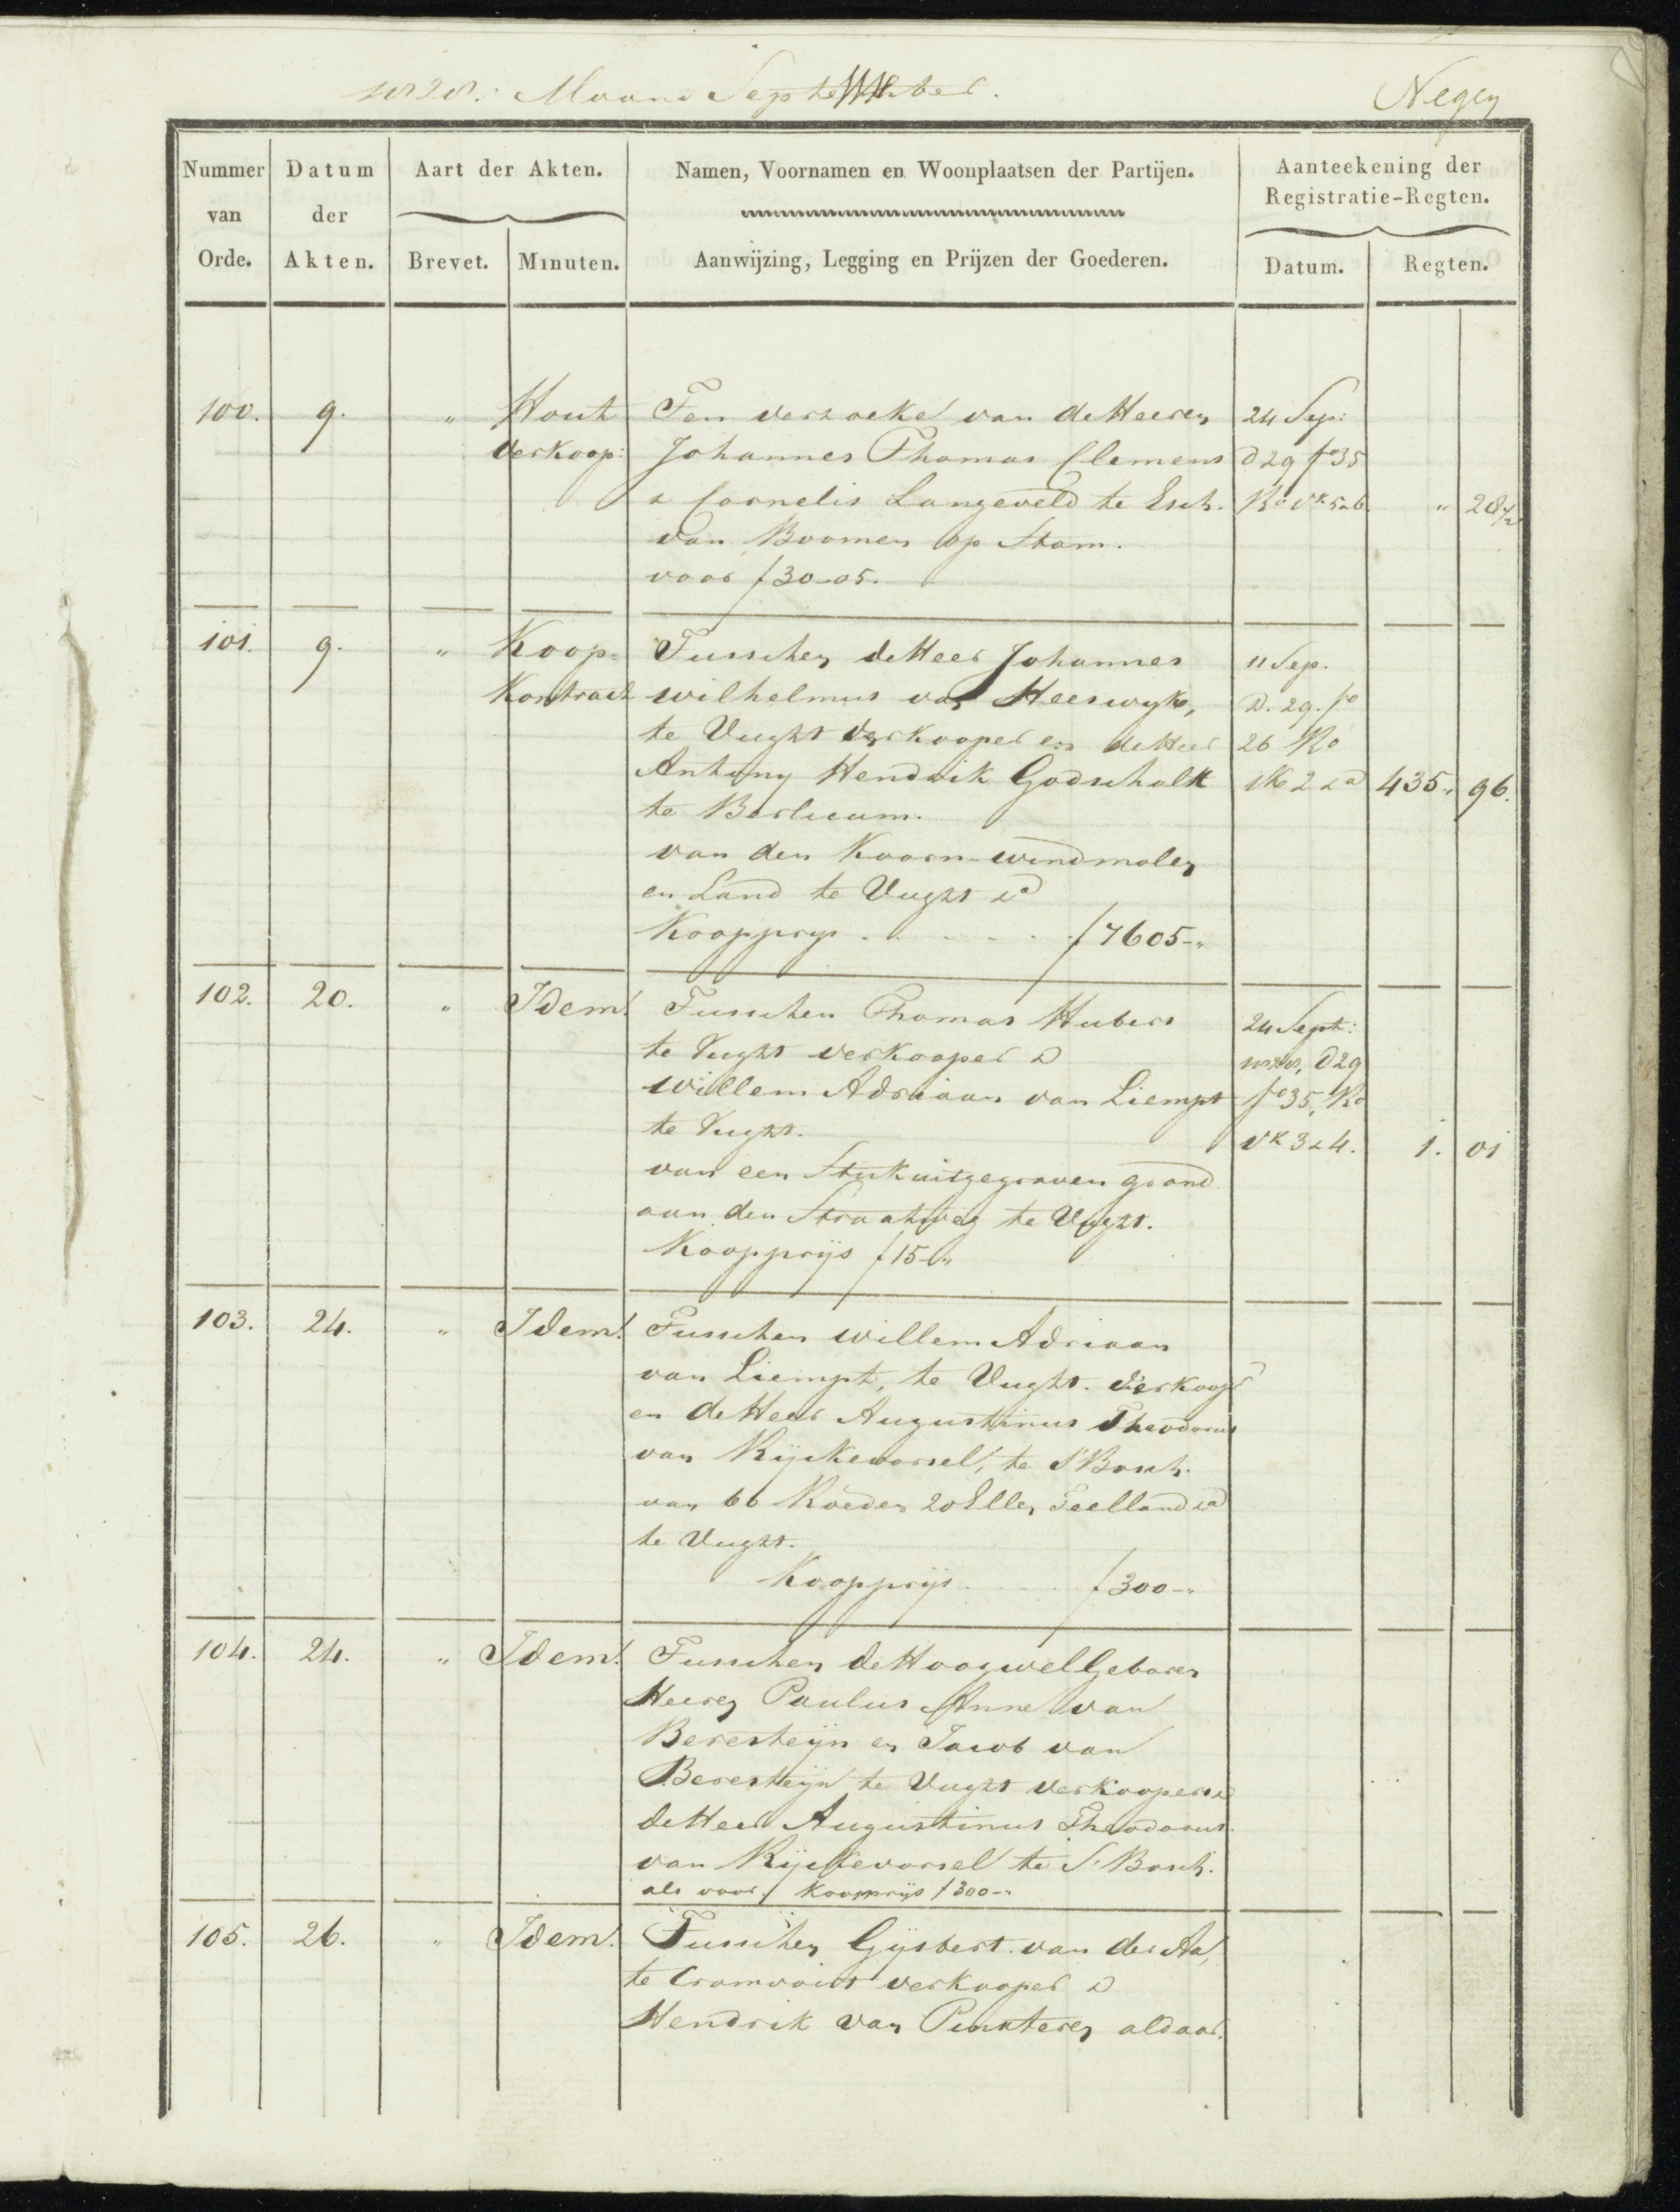 1828. Maand September. Negen
Nummer van Orde. Datum der Akten. Aart der Akten. Brevet. Minuten. Namen, Voornamen en Woonplaatsen der Partijen. Aanwijzing, Legging en Prijzen der Goederen. Aanteekening der Registratie-Regten. Datum. Regten.
100. 9. " Hout Ten verzoeke van de Heeren 24 Sep:
verkoop: Johannes Thomas Clemens D 29 fo 35
& Cornelis Langeveld te Esch. Ro Vk 5 & 6 " 28½
van Boomen op Stam.
voor f 30-05.
101. 9. " Koop- Tusschen de Heer Johannes 11 Sep.
Kontract wilhelmus van Heeswyk, D. 29. fo
te Vught verkooper en de Heer 26 Ro
Antony Hendrik Godschalk Vk 2 &a 435 " 96.
te Berlicum.
van den Koorn-windmolen
en Land te Vught &a
Koopprys . . . . . . f 7605-"
102. 20. " Idem. Tusschen Thomas Hubers 24 Sept:
te Vught verkooper &
1828, D 29
willem Adriaan van Liempt fo 35, Ro
te Vught. Vk 3 & 4. 1. 01
van een Stuk uitgegraven grond
aan den Straatweg te Vught.
Koopprijs f 15-"
103. 24. " Idem. Tusschen willem Adriaan
van Liempt, te Vught. verkoopr
en de Heer Augustinus Theodorus
van Rijckevorsel, te S'Bosch.
van 66 Roeden 20 Ellen Teelland &a
te Vught.
Koopprijs . . . . f 300-"
104. 24. " Idem. Tusschen de Hoogwelgeboren
Heeren Paulus Anne van
Beresteijn en Jacob van
Beresteijn te Vught verkoopers &
de Heer Augustinus Theodorus
van Rijckevorsel te S'Bosch.
als voor. Koopprijs f 300-"
105. 26. " Idem. Tusschen Gijsbert van der Aa,
te Cromvoirt verkooper &
Hendrik van Pinxteren aldaar.